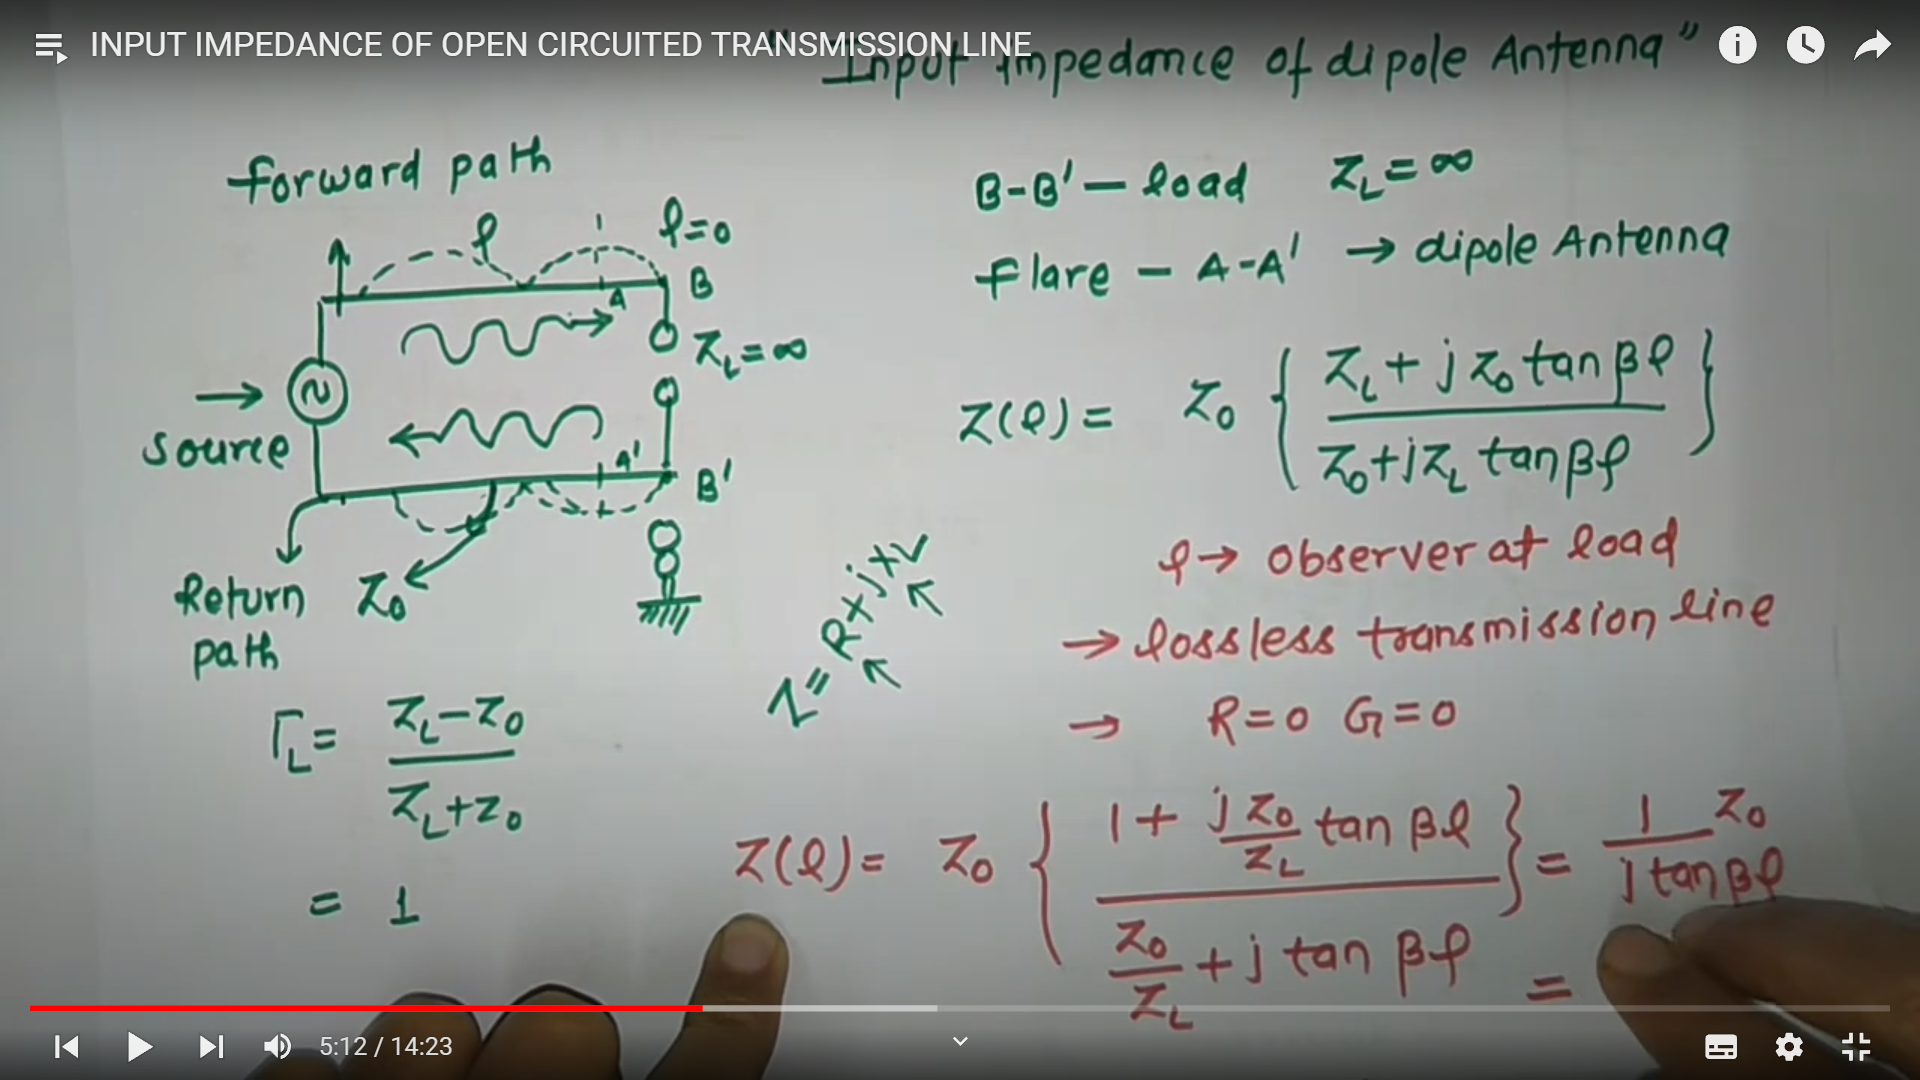 INPUT IMPEDANCE OF OPEN CIRCUITED TRANSMISSION LINE
"Input impedance of dipole Antenna"
forward path
l
l=0
A
B
Z_L=∞
Source
A'
B'
Return path
Z_0
Γ_L= (Z_L-Z_0)/(Z_L+Z_0)
= 1
Z=R+jX
B-B' — load Z_L=∞
flare — A-A' → dipole Antenna
Z(l)= Z_0 { (Z_L+jZ_0 tanβl)/(Z_0+jZ_L tanβl) }
l→ observer at load
→ lossless transmission line
→ R=0 G=0
Z(l)= Z_0 { (1+ jZ_0/Z_L tan βl)/(Z_0/Z_L + j tan βl) } = 1/(j tanβl) Z_0
=
5:12 / 14:23